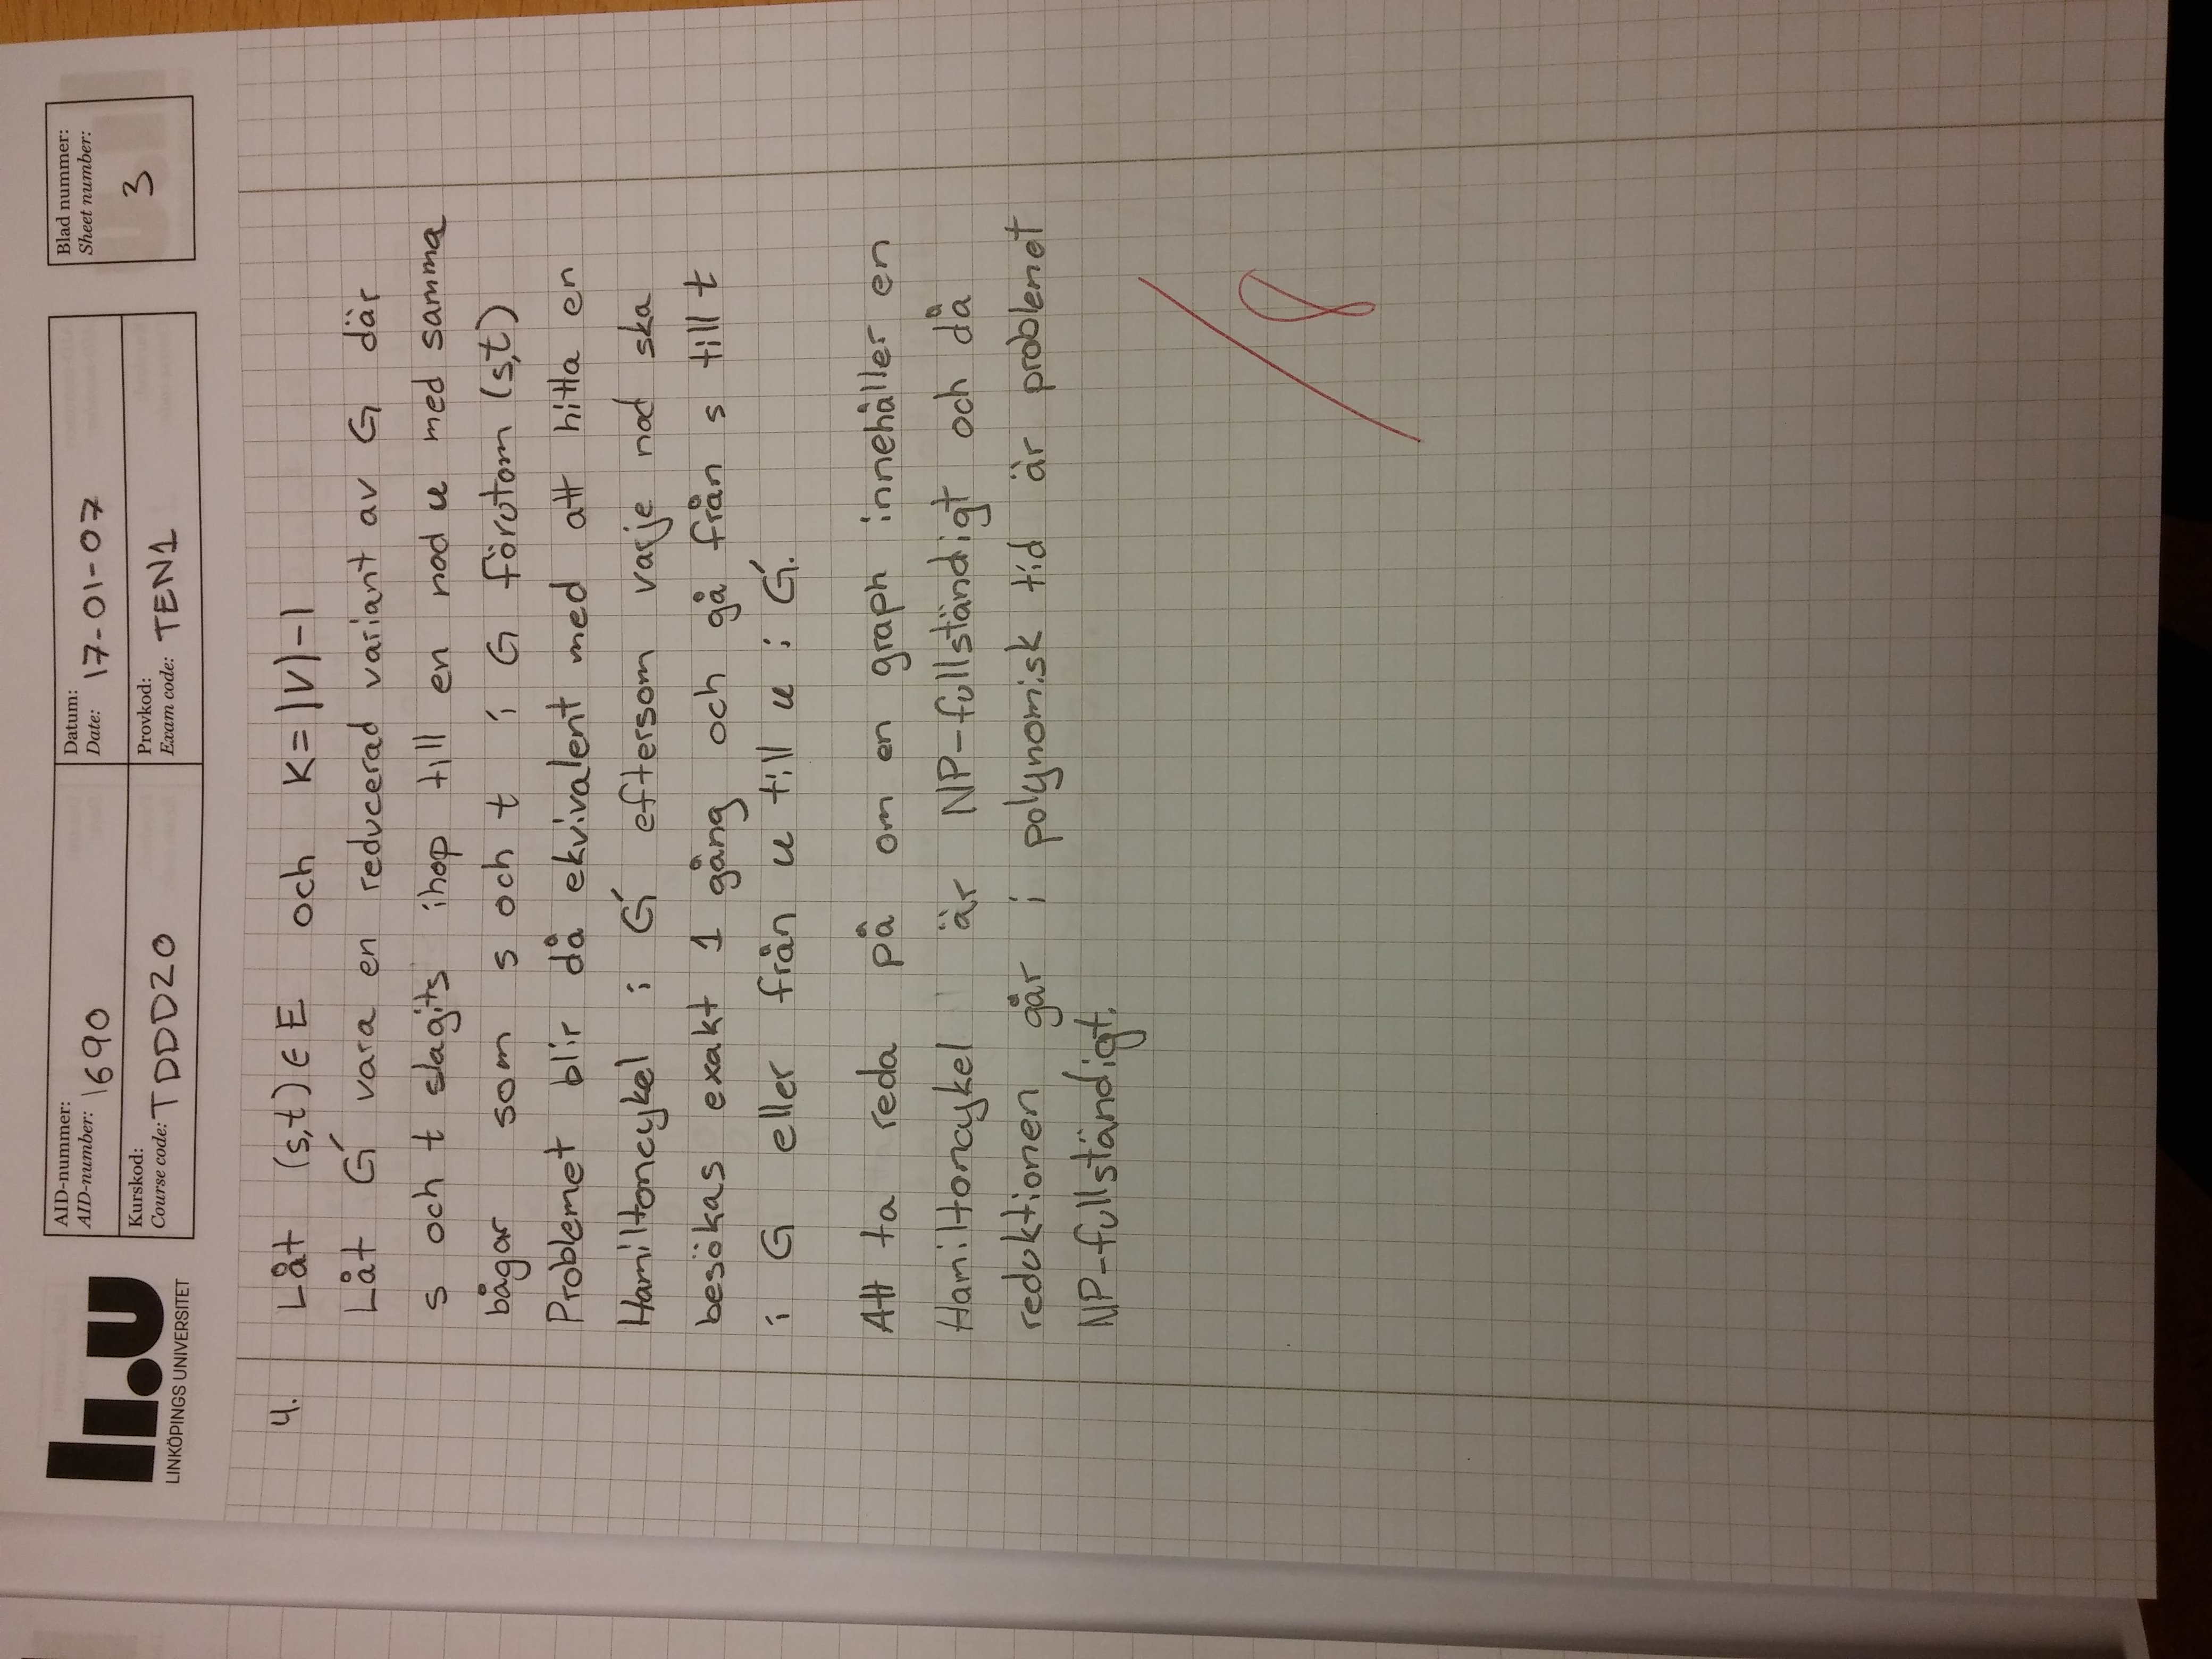 li.u
LINKÖPINGS UNIVERSITET
AID-nummer:
AID-number: 1690
Datum:
Date: 17-01-07
Blad nummer:
Sheet number:
3
Kurskod:
Course code: TDDD20
Provkod:
Exam code: TEN1
4. Låt (s,t) ∈ E och K=|V|-1
Låt G' vara en reducerad variant av G där
s och t slagits ihop till en nod u med samma
bågar som s och t i G förutom (s,t)
Problemet blir då ekvivalent med att hitta en
Hamiltoncykel i G' eftersom varje nod ska
besökas exakt 1 gång och gå från s till t
i G eller från u till u i G'.
Att ta reda på om en graph innehåller en
Hamiltoncykel är NP-fullständigt och då
reduktionen går i polynomisk tid är problemet
NP-fullständigt.